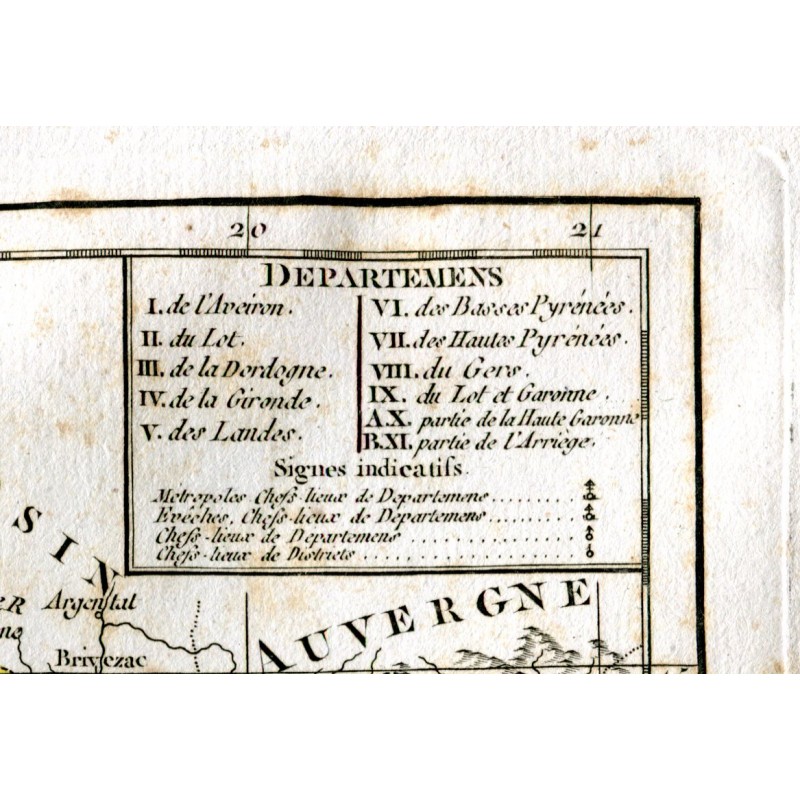 20 21
DEPARTEMENS
I. de l'Aveiron.
II. du Lot.
III. de la Dordogne.
IV. de la Gironde.
V. des Landes.
VI. des Basses Pyrénées.
VII. des Hautes Pyrénées.
VIII. du Gers.
IX. du Lot et Garonne.
A.X. partie de la Haute Garonne
B.XI. partie de l'Arriège.
Signes indicatifs.
Métropoles Chefs-lieux de Departemens
Evêches, Chefs-lieux de Departemens
Chefs-lieux de Departemens
Chefs-lieux de Districts
SIN
AUVERGNE
ER Argental
ne
Brivezac